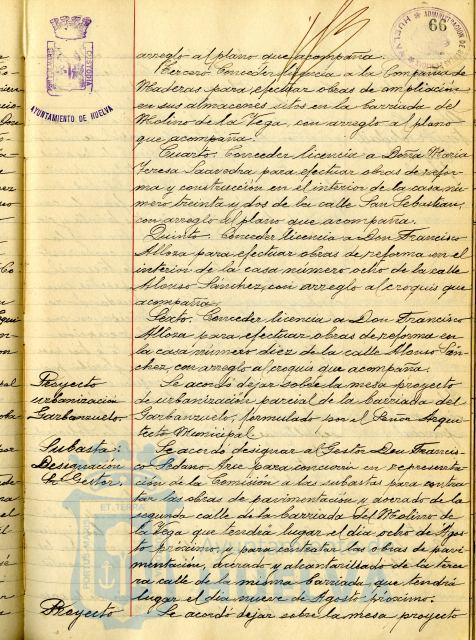 66
AYUNTAMIENTO DE HUELVA
arreglo al plano que acompaña.
Tercero. Conceder licencia a la Compañia de
Maderas para efectuar obras de ampliacion
en sus almacenes sitos en la barriada del
Molino de la Vega, con arreglo al plano
que acompaña.
Cuarto. Conceder licencia a Doña Maria
Teresa Saavedra para efectuar obras de refor-
ma y construccion en el interior de la casa nu-
mero treinta y dos de la calle San Sebastian,
con arreglo al plano que acompaña.
Quinto. Conceder licencia a Don Francisco
Alloza para efectuar obras de reforma en el
interior de la casa número ocho de la calle
Alonso Sanchez, con arreglo al croquis que
acompaña.
Sexto. Conceder licencia a Don Francisco
Alloza para efectuar obras de reforma en
la casa número diez de la calle Alonso Sán-
chez, con arreglo al croquis que acompaña.
Proyecto
urbanizacion
Garbanzuelo.
Se acordó dejar sobre la mesa proyecto
de urbanización parcial de la barriada del
Garbanzuelo, formulado por el Señor Arqui-
tecto Municipal.
Subasta:
Designación
de Gestor.
Se acordo designar al Gestor Don Francis-
co Sedano para concurrir en representa-
ción de la Comisión a las subastas para contra-
tar las obras de pavimentación y acerado de la
segunda calle de la barriada del Molino de
la Vega que tendrá lugar el dia ocho de Agos-
to próximo, y para contratar las obras de pavi-
mentación, acerado y alcantarillado de la terce-
ra calle de la misma barriada, que tendrá
lugar el dia nueve de Agosto próximo.
Proyecto
Se acordó dejar sobre la mesa proyecto